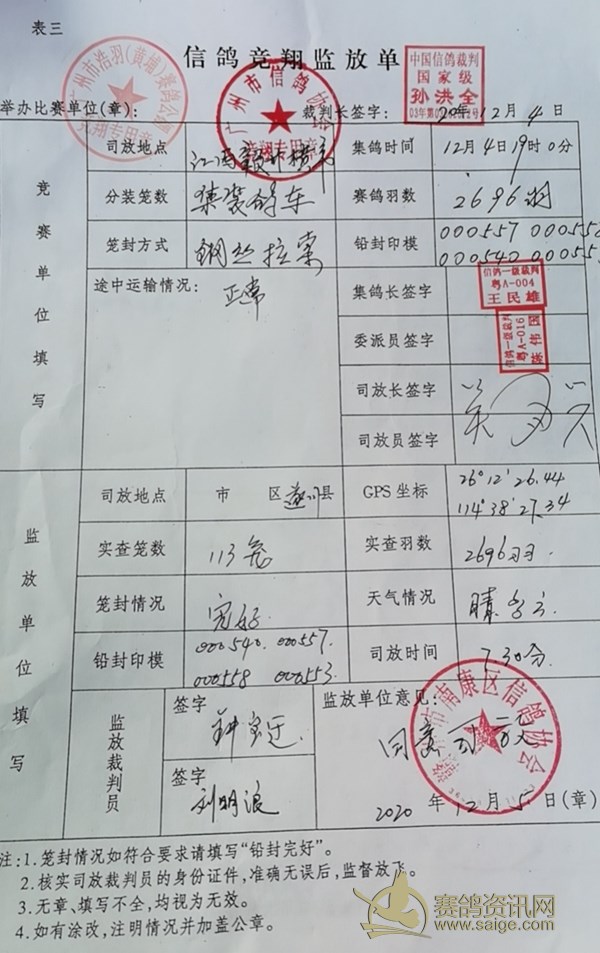 表三
信鸽竞翔监放单
中国信鸽裁判
国家级
孙洪全
举办比赛单位(章):
裁判长签字:
12月4日
广州市信鸽协会
竞翔专用章
竞赛单位填写
司放地点
集鸽时间 12月4日19时0分
分装笼数 集装鸽车
赛鸽羽数 2696羽
笼封方式 钢丝拉索
铅封印模 000557 000558
000540
途中运输情况: 正常
集鸽长签字
信鸽一级裁判
粤A-004
王民雄
委派员签字
信鸽一级裁判
粤A-016
司放长签字
司放员签字
监放单位填写
司放地点 市 区遂川县
GPS坐标 26°12'26.44
114°38'27.34
实查笼数 113笼
实查羽数 2696羽
笼封情况 完好
天气情况 晴
铅封印模 000540. 000557.
000558 000553
司放时间 7.30分
监放裁判员
签字
签字 刘明浪
监放单位意见:
同意司放
南康区信鸽协会
2020年12月5日(章)
注:1.笼封情况如符合要求请填写“铅封完好”。
2.核实司放裁判员的身份证件,准确无误后,监督放飞。
3.无章、填写不全,均视为无效。
4.如有涂改,注明情况并加盖公章。
赛鸽资讯网
www.saige.com